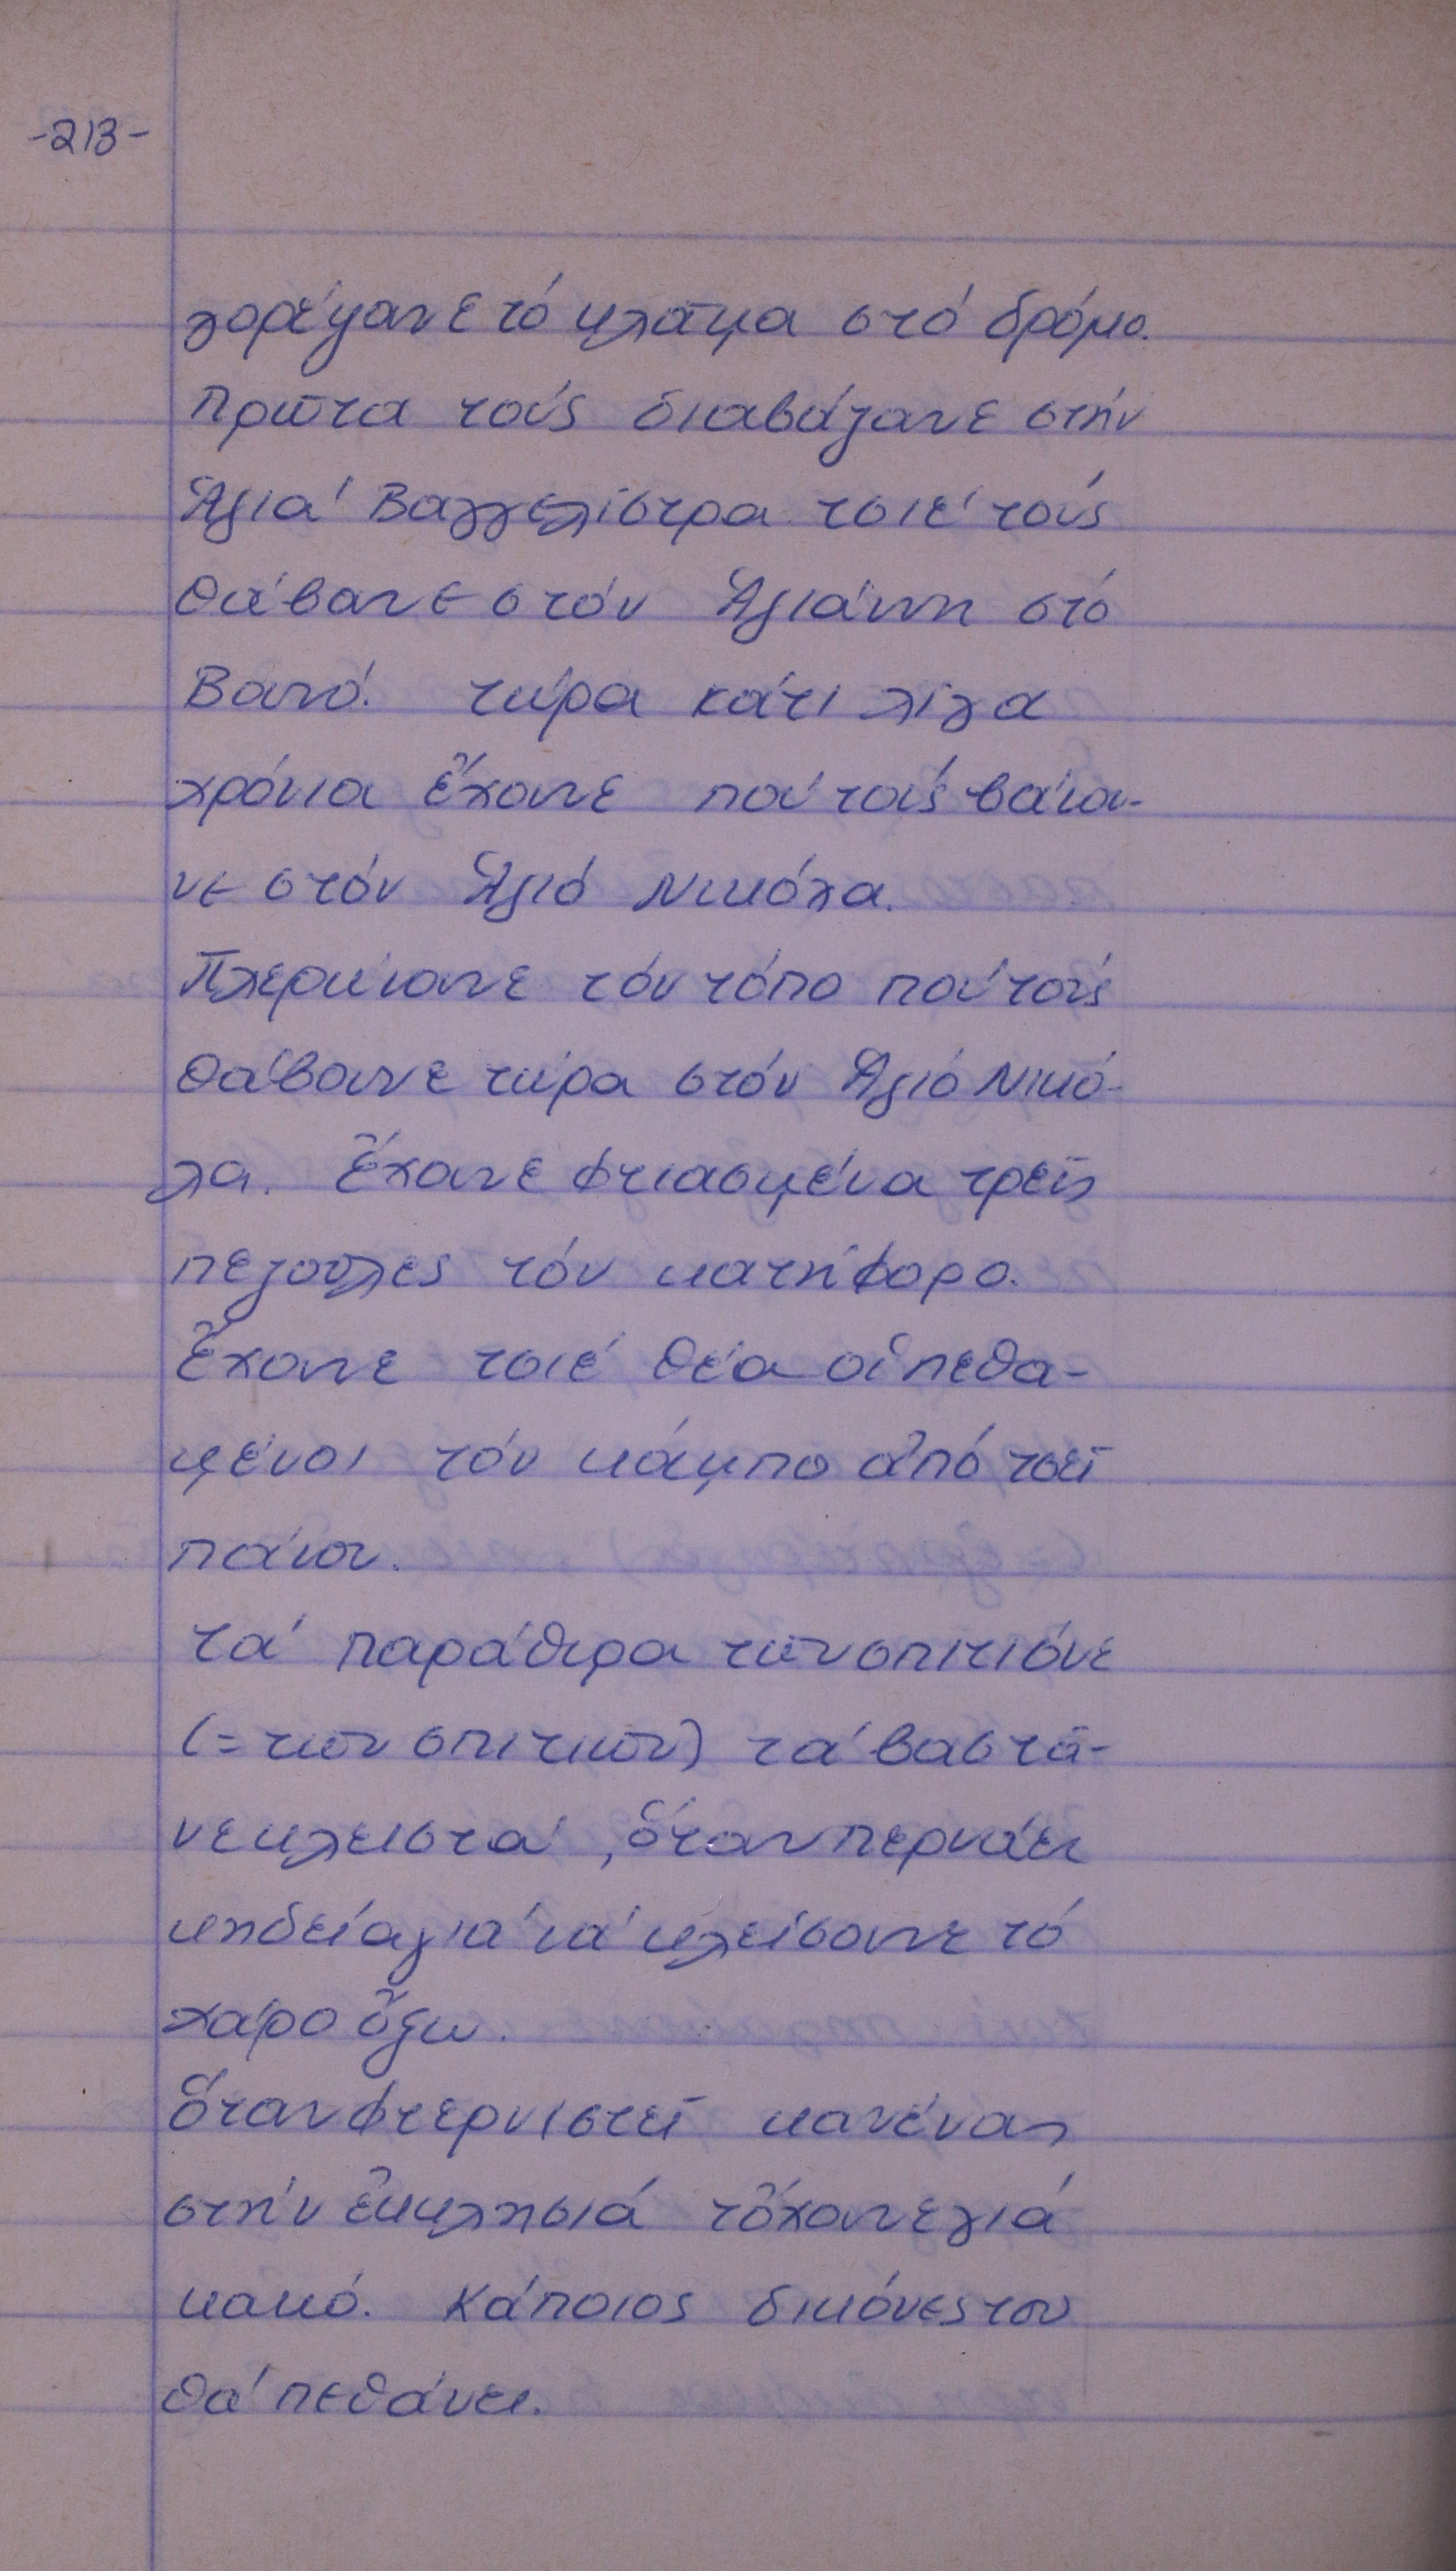 -213-
λορέψανε τό κλᾶμα στό δρόμο.
Πρῶτα τούς διαβάζανε στήν
Ἁγιά Βαγγελίστρα τσιέ τούς
θάβανε στόν Ἁγιάννη στό
Βαπό. τώρα κάτι λίγα
χρόνια ἔχουνε πού τούς βάνου-
νε στόν Ἁγιό Νικόλα.
Πλερώνουνε τόν τόπο πού τούς
θάβουνε τώρα στόν Ἁγιό Νικό-
λα. Ἔχουνε φτιασμένα τρεῖς
πεζοῦλες τόν κατήφορο.
Ἔχουνε τσιέ θέα οἱ πεθα-
μένοι τόν κάμπο ἀπό τσεῖ
πάνου.
τά παράθιρα τῶν σπιτιόνε
(= τῶν σπιτιῶν) τά βαστᾶ-
νε κλειστά, ὅταν περνάει
κηδεία γιά νά κλείσουνε τό
χάρο ὄξω.
Ὅταν φτερνιστεῖ κανένας
στήν ἐκκλησιά τὄχουνε γιά
κακό. Κάποιος δικόνες του
θά πεθάνει.